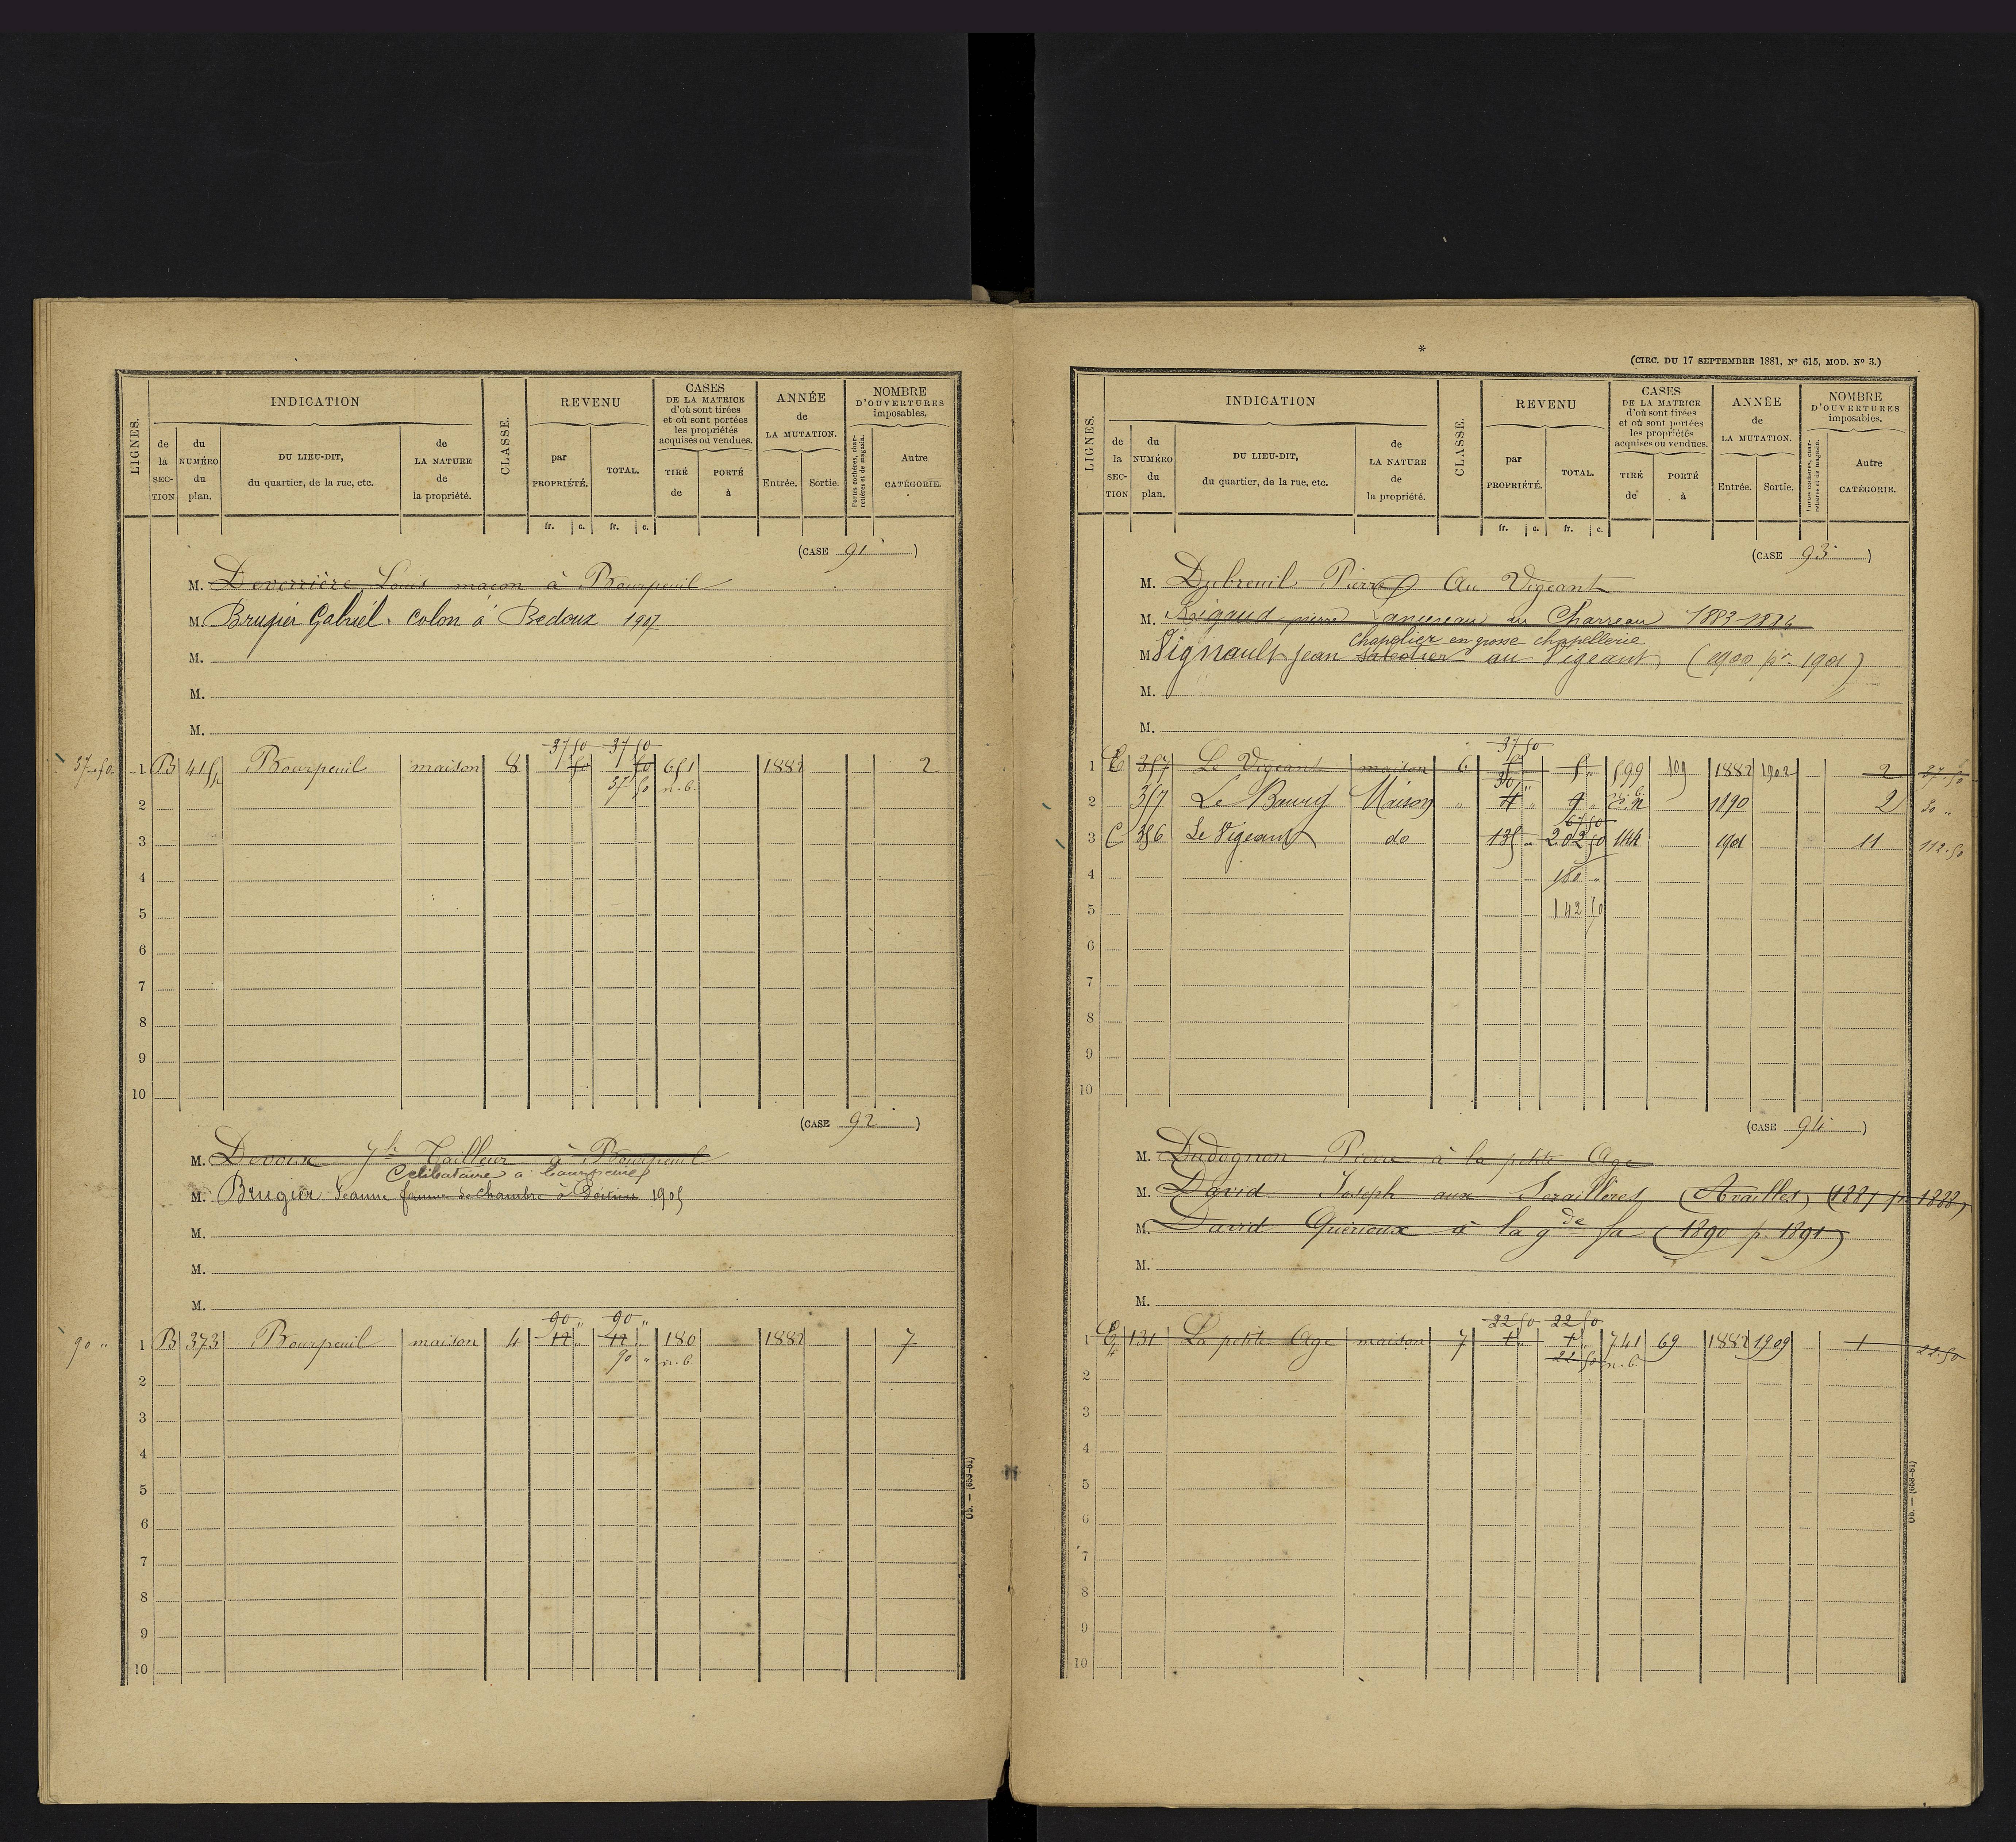 LIGNES.
INDICATION
CLASSE.
REVENU
CASES
DE LA MATRICE
d'où sont tirées
et où sont portées
les propriétés
acquises ou vendues.
ANNÉE
de
LA MUTATION.
NOMBRE
D'OUVERTURES
imposables.
de la SECTION
du NUMÉRO du plan.
DU LIEU-DIT,
du quartier, de la rue, etc.
de LA NATURE de la propriété.
par PROPRIÉTÉ.
TOTAL.
TIRÉ de
PORTÉ à
Entrée.
Sortie.
Portes cochères, charretières et de magasin.
Autre CATÉGORIE.
fr. c. fr. c.
(CASE 91)
M. Deverrière Louis maçon à Bourpeuil
M. Brugier Gabriel. Colon à Bedoux 1907
M.
M.
M.
37 50 37 50
37.50 1 B 415 Bourpeuil maison 8 651 1882 2
37 50 n.b.
2
3
4
5
6
7
8
9
10
(CASE 92)
M. Devoise Tailleur à Bourpeuil
Celibataire à Bourpeuil
M. Brugier Jeanne femme de chambre à Poitiers 1905
M.
M.
M.
90 " 90 "
90 " 1 B 373 Bourpeuil maison 4 12 " 12 " 180 1882 7
90 " n.b.
2
3
4
5
6
7
8
9
10
Ob. — (653-81)
(CIRC. DU 17 SEPTEMBRE 1881, N° 615, MOD. N° 3.)
LIGNES.
INDICATION
CLASSE.
REVENU
CASES
DE LA MATRICE
d'où sont tirées
et où sont portées
les propriétés
acquises ou vendues.
ANNÉE
de
LA MUTATION.
NOMBRE
D'OUVERTURES
imposables.
de la SECTION
du NUMÉRO du plan.
DU LIEU-DIT,
du quartier, de la rue, etc.
de LA NATURE de la propriété.
par PROPRIÉTÉ.
TOTAL.
TIRÉ de
PORTÉ à
Entrée.
Sortie.
Portes cochères, charretières et de magasin.
Autre CATÉGORIE.
fr. c. fr. c.
(CASE 93)
M. Dubreuil Pierre Au Vigeant
M. Rigaud pierre au Charreau
chapelier en grosse chapellerie
M. Vignault Jean sabotier au Vigeant (1900 pr 1901)
M.
M.
37 50
1 357 Le Vigeant maison 6 5 " 599 109 1882 1902 2 37.50
30 "
2 357 Le Bourg Maison " 1890 2 30 "
67 50
3 C 356 Le Vigeant do 135 " 202 50 144 1901 11 112.50
4 180 "
5 142 50
6
7
8
9
10
(CASE 94)
M. Dudognon Pierre à la petite Age
M. David Joseph aux Seraillères (Availles) (1887 pr 1888)
M. David Quérioux à la gde (1890 p. 1891)
M.
M.
22 50 22 50
1 131 La petite Age maison 7 741 69 1882 1909 1 22.50
22 50 n.b.
2
3
4
5
6
7
8
9
10
Ob. — (653-81)